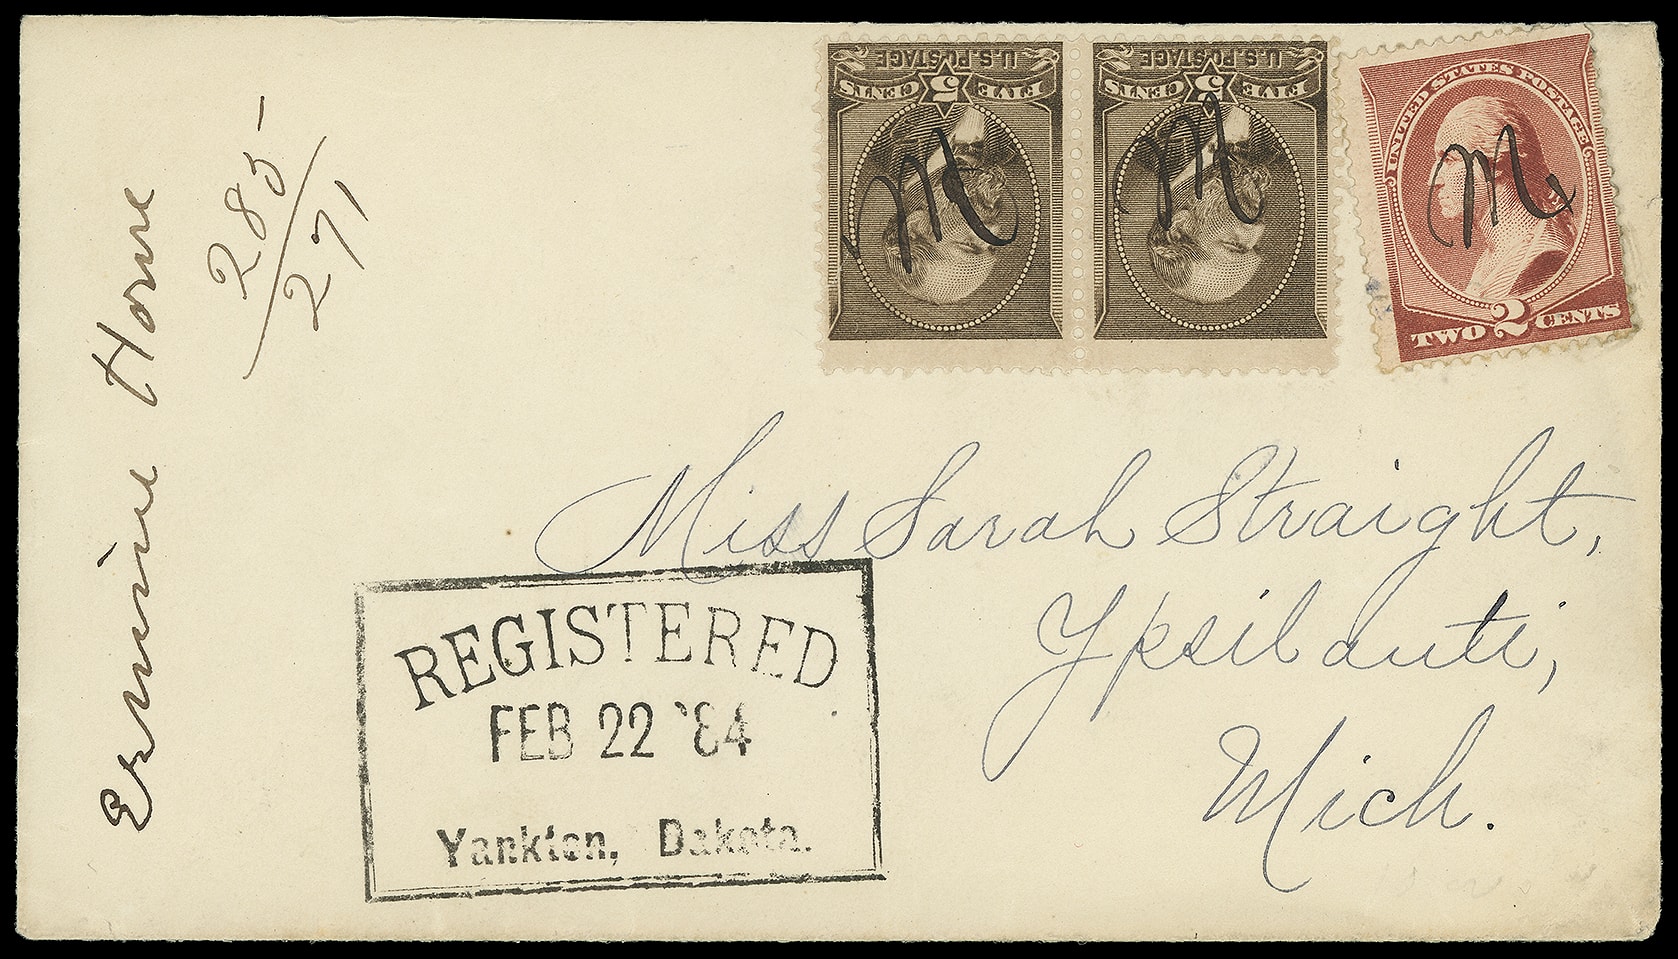 U.S. POSTAGE
FIVE 5 CENTS
M
U.S. POSTAGE
FIVE 5 CENTS
M
UNITED STATES POSTAGE
M
TWO 2 CENTS
285
271
Miss Sarah Straight,
Ypsilanti,
Mich.
REGISTERED
FEB 22 '84
Yankton, Dakota.